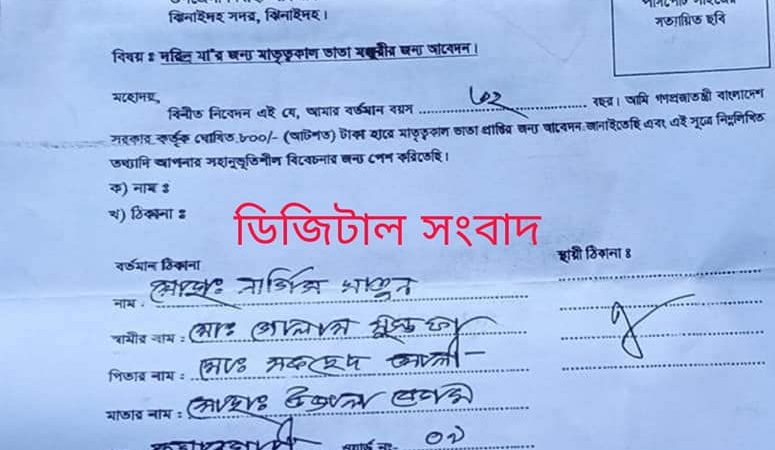 ঝিনাইদহ সদর, ঝিনাইদহ।
সত্যায়িত ছবি
বিষয় ঃ দরিদ্র মা'র জন্য মাতৃত্বকাল ভাতা মঞ্জুরীর জন্য আবেদন।
মহোদয়,
বিনীত নিবেদন এই যে, আমার বর্তমান বয়স ৩২ বছর। আমি গণপ্রজাতন্ত্রী বাংলাদেশ
সরকার কর্তৃক ঘোষিত ৮০০/- (আটশত) টাকা হারে মাতৃত্বকাল ভাতা প্রাপ্তির জন্য আবেদন জানাইতেছি এবং এই সূত্রে নিম্নলিখিত
তথ্যাদি আপনার সহানুভূতিশীল বিবেচনার জন্য পেশ করিতেছি।
ক) নাম ঃ
খ) ঠিকানা ঃ
ডিজিটাল সংবাদ
বর্তমান ঠিকানা
স্থায়ী ঠিকানা ঃ
নাম : মোছাঃ নার্গিস খাতুন
স্বামীর নাম : মোঃ গোলাম মুস্তফা
পিতার নাম : মোঃ মকছেদ আলী
মাতার নাম : মোছাঃ
ওয়ার্ড নং- ০৯